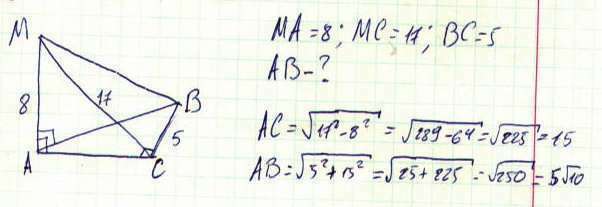 M
8
17
B
5
A
C
MA = 8; MC = 17; BC = 5
AB - ?
AC = √17² - 8² = √289 - 64 = √225 = 15
AB = √5² + 15² = √25 + 225 = √250 = 5√10